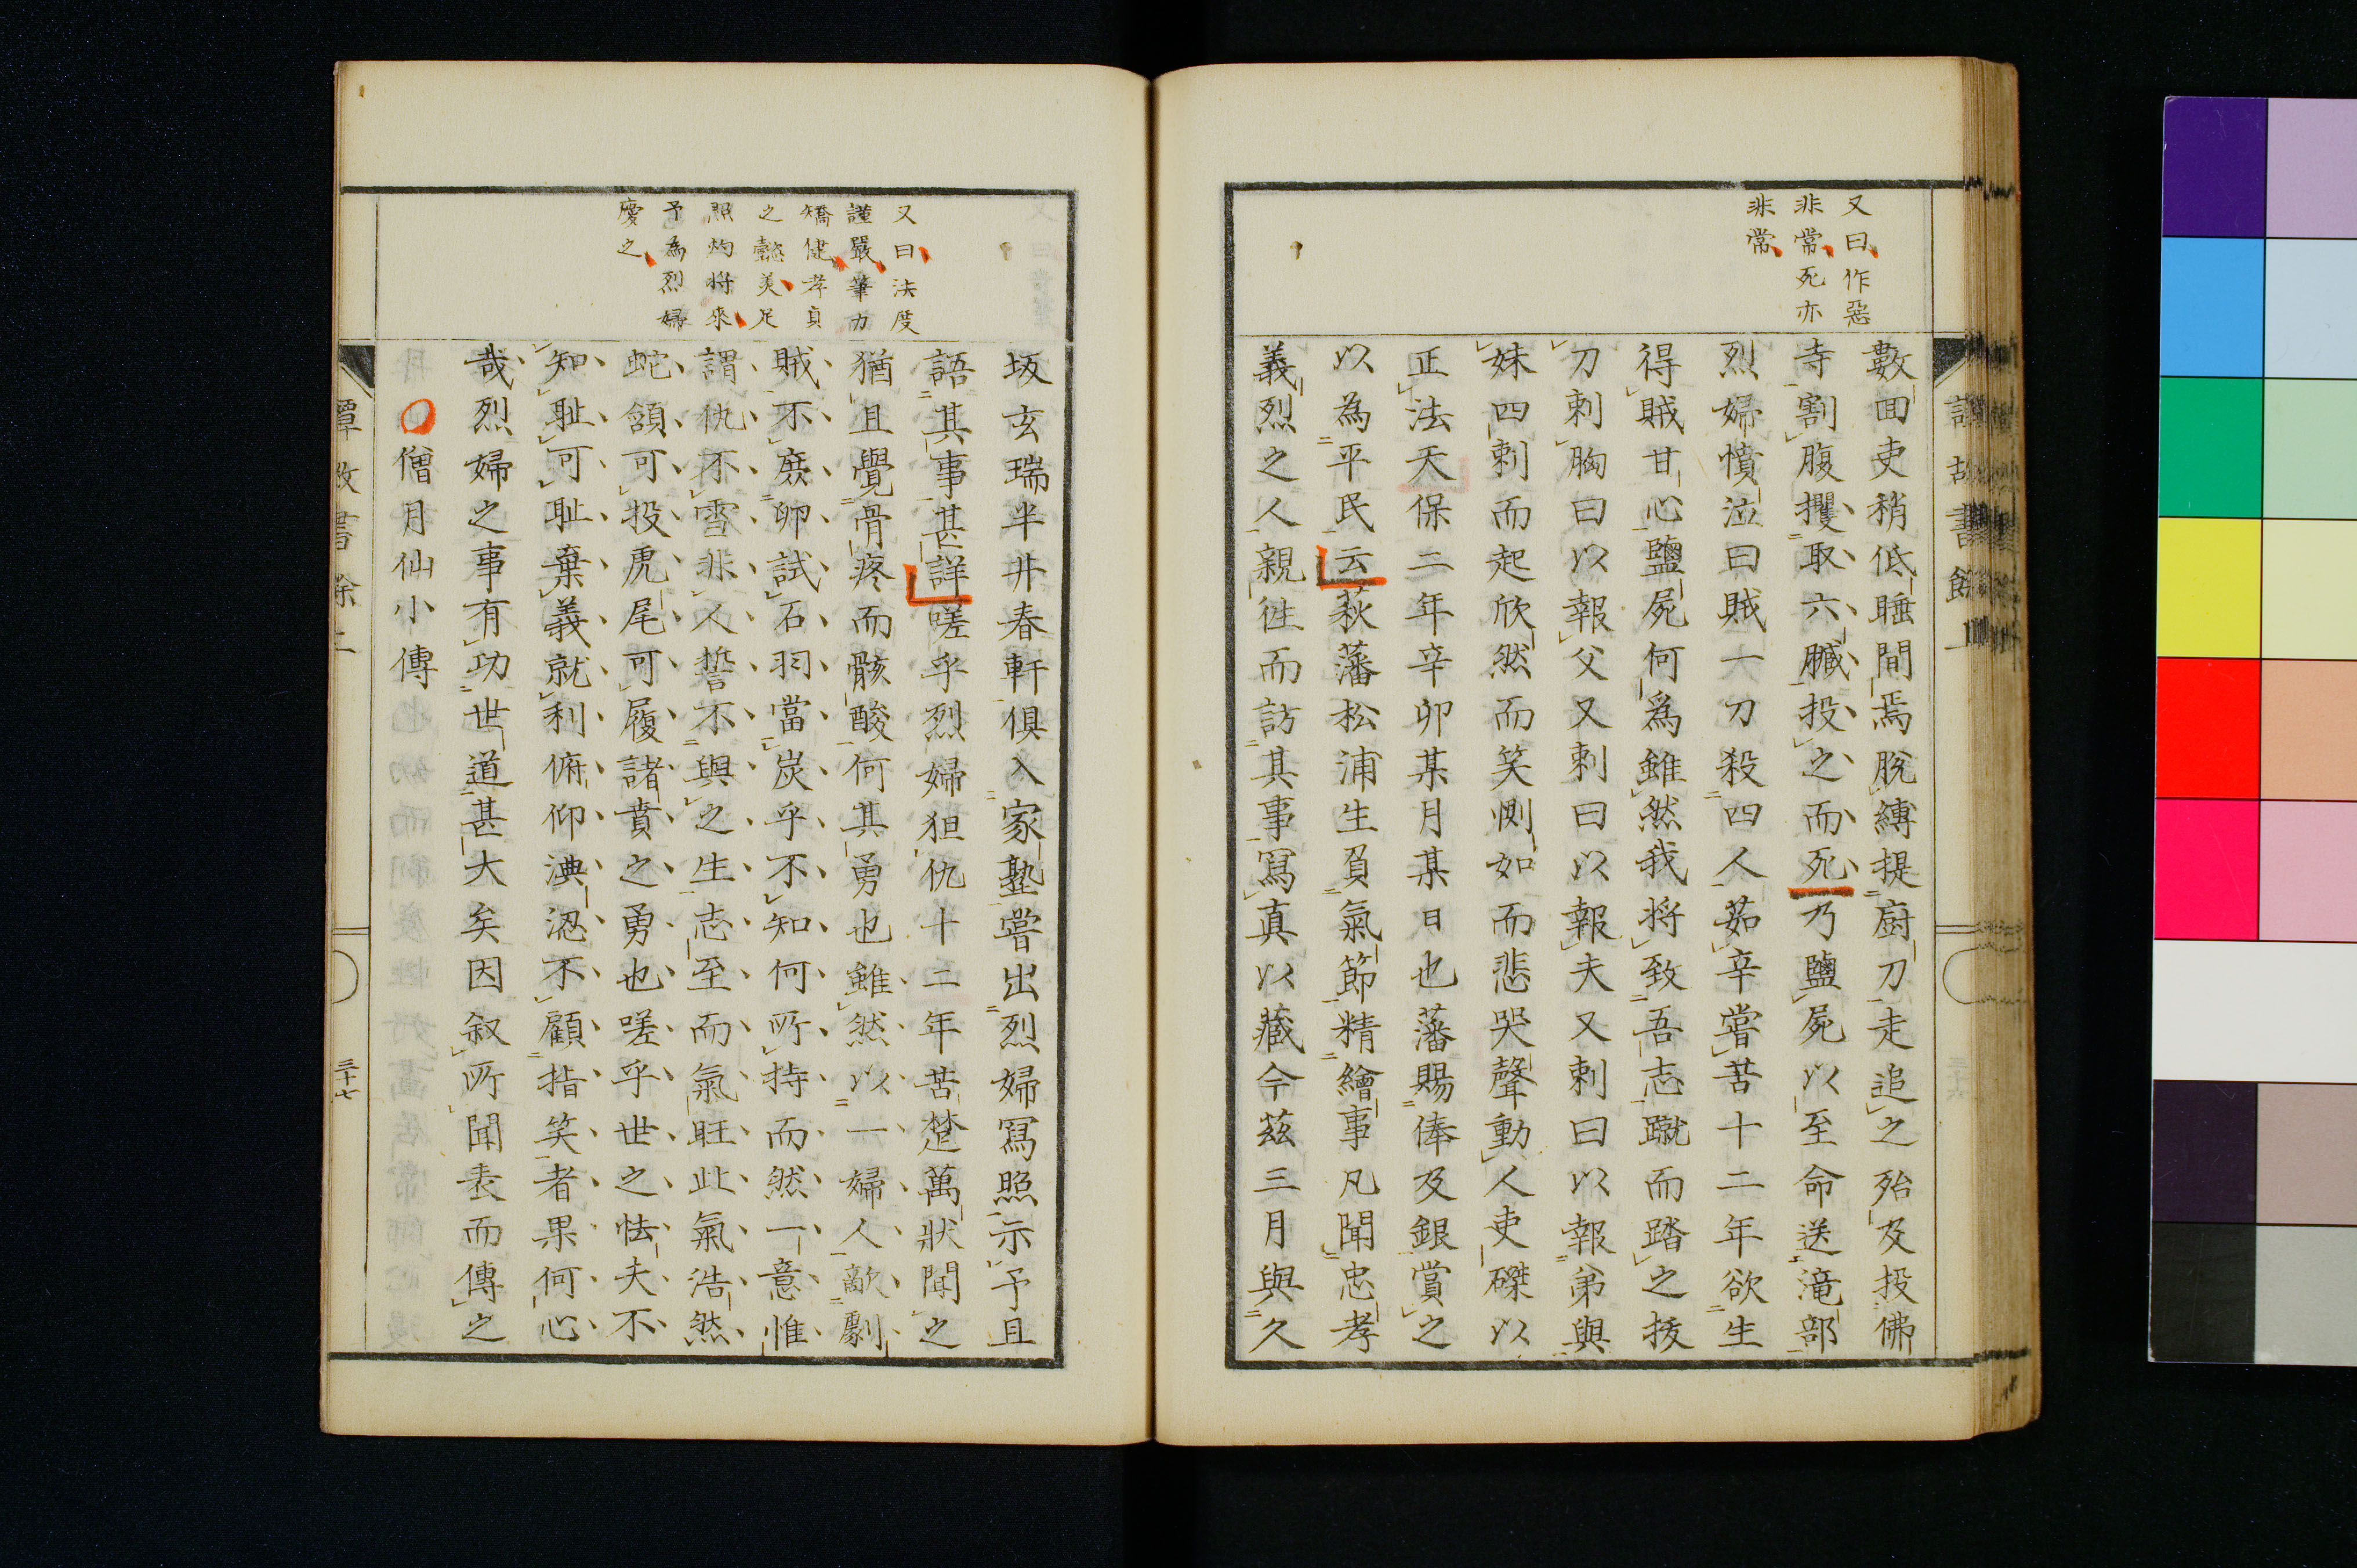 又曰作惡
非常死亦
非常
數回吏稍低睡間焉脫縛提厨刀走追之殆及投佛
寺割腹攫取六臓投之而死乃鹽屍以至命送滝部
烈婦憤泣曰賊一刀殺四人茹辛嘗苦十二年欲生
得賊甘心鹽屍何為雖然我将致吾志蹴而踏之拔
刀刺胸曰以報父又刺曰以報夫又刺曰以報弟與
妹四刺而起欣然而笑惻如而悲哭聲動人吏磔以
正法天保二年辛卯某月某日也藩賜俸及銀賞之
以為平民云萩藩松浦生負氣節精繪事凡聞忠孝
義烈之人親往而訪其事寫真以藏今茲三月與久
又曰法度
謹嚴筆力
矯健孝貞
之懿美足
照灼将來
予為烈婦
慶之
坂玄瑞半井春軒俱入家塾嘗出烈婦寫照示予且
語其事甚詳嗟乎烈婦狙仇十二年苦楚萬狀聞之
猶且覺骨疼而骸酸何其勇也雖然以一婦人敵劇
賊不庶卵試石羽當炭乎不知何所持而然一意惟
謂仇不雪非人誓不與之生志至而氣旺此氣浩然
蛇頷可投虎尾可履諸賁之勇也嗟乎世之怯夫不
知耻可耻棄義就利俯仰淟涊不顧指笑者果何心
哉烈婦之事有功世道甚大矣因叙所聞表而傳之
○僧月仙小傳
三十七